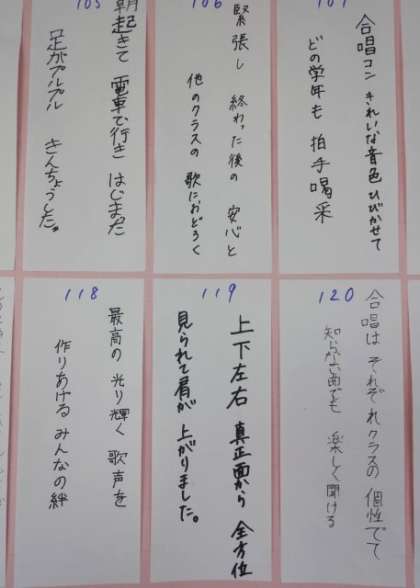 105
朝起きて 電車で行き はじまった
足がプルプル きんちょうした。
106
緊張し 終わった後の 安心と
他のクラスの 歌におどろく
107
合唱コン きれいな音色 ひびかせて
どの学年も 拍手喝采
118
最高の 光り輝く 歌声を
作りあげる みんなの絆
119
上下左右 真正面から 全方位
見られて肩が 上がりました。
120
合唱は それぞれクラスの 個性でて
知らない曲でも 楽しく聞ける